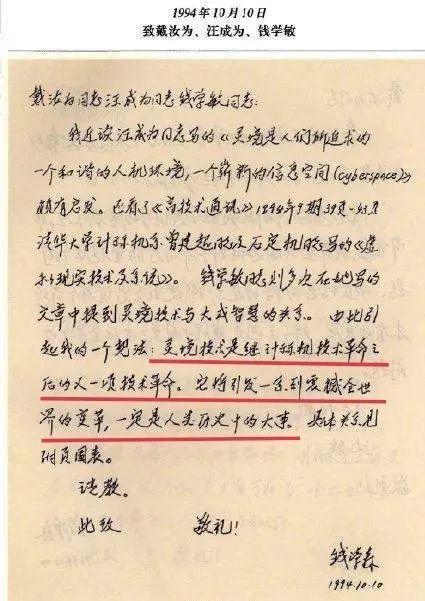 1994年10月10日
致戴汝为、汪成为、钱学敏
戴汝为同志汪成为同志钱学敏同志：
我近读汪成为同志写的《灵境是人们所追求的
一个和谐的人机环境，一个崭新的信息空间(cyberspace)》
颇有启发。也看了《高技术通讯》1994年9期39页-42页
清华大学计算机系曾建超同志及石定机同志写的《虚
拟现实技术及系统》。 钱学敏同志则多次在她写的
文章中提到灵境技术与大成智慧的关系。 由此引
起我的一个想法：灵境技术是继计算机技术革命之
后的又一项技术革命。它将引发一系列震撼全世
界的变革，一定是人类历史中的大事。具体关系见
附页图表。
请教。
此致 敬礼！
钱学森
1994.10.10